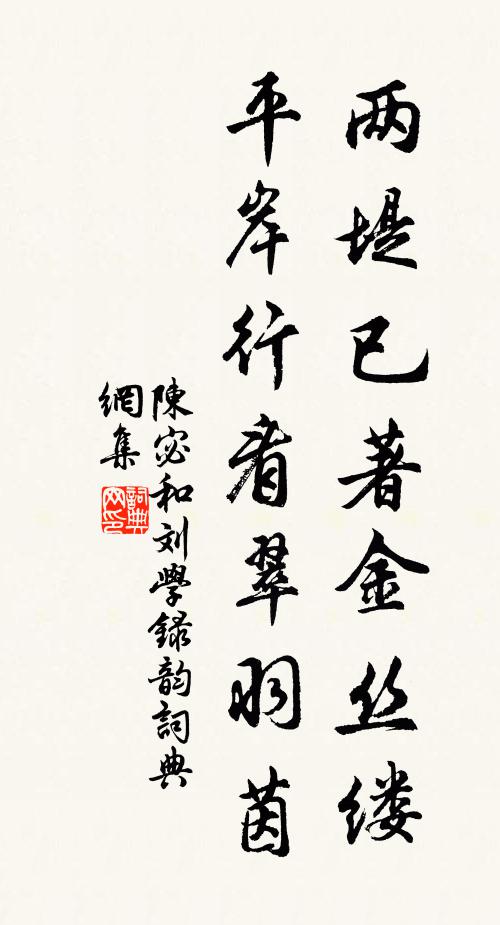 两堤已著金丝缕
平岸行看翠羽茵
陳宓和刘學録韵詞典
網集
詞典
网印